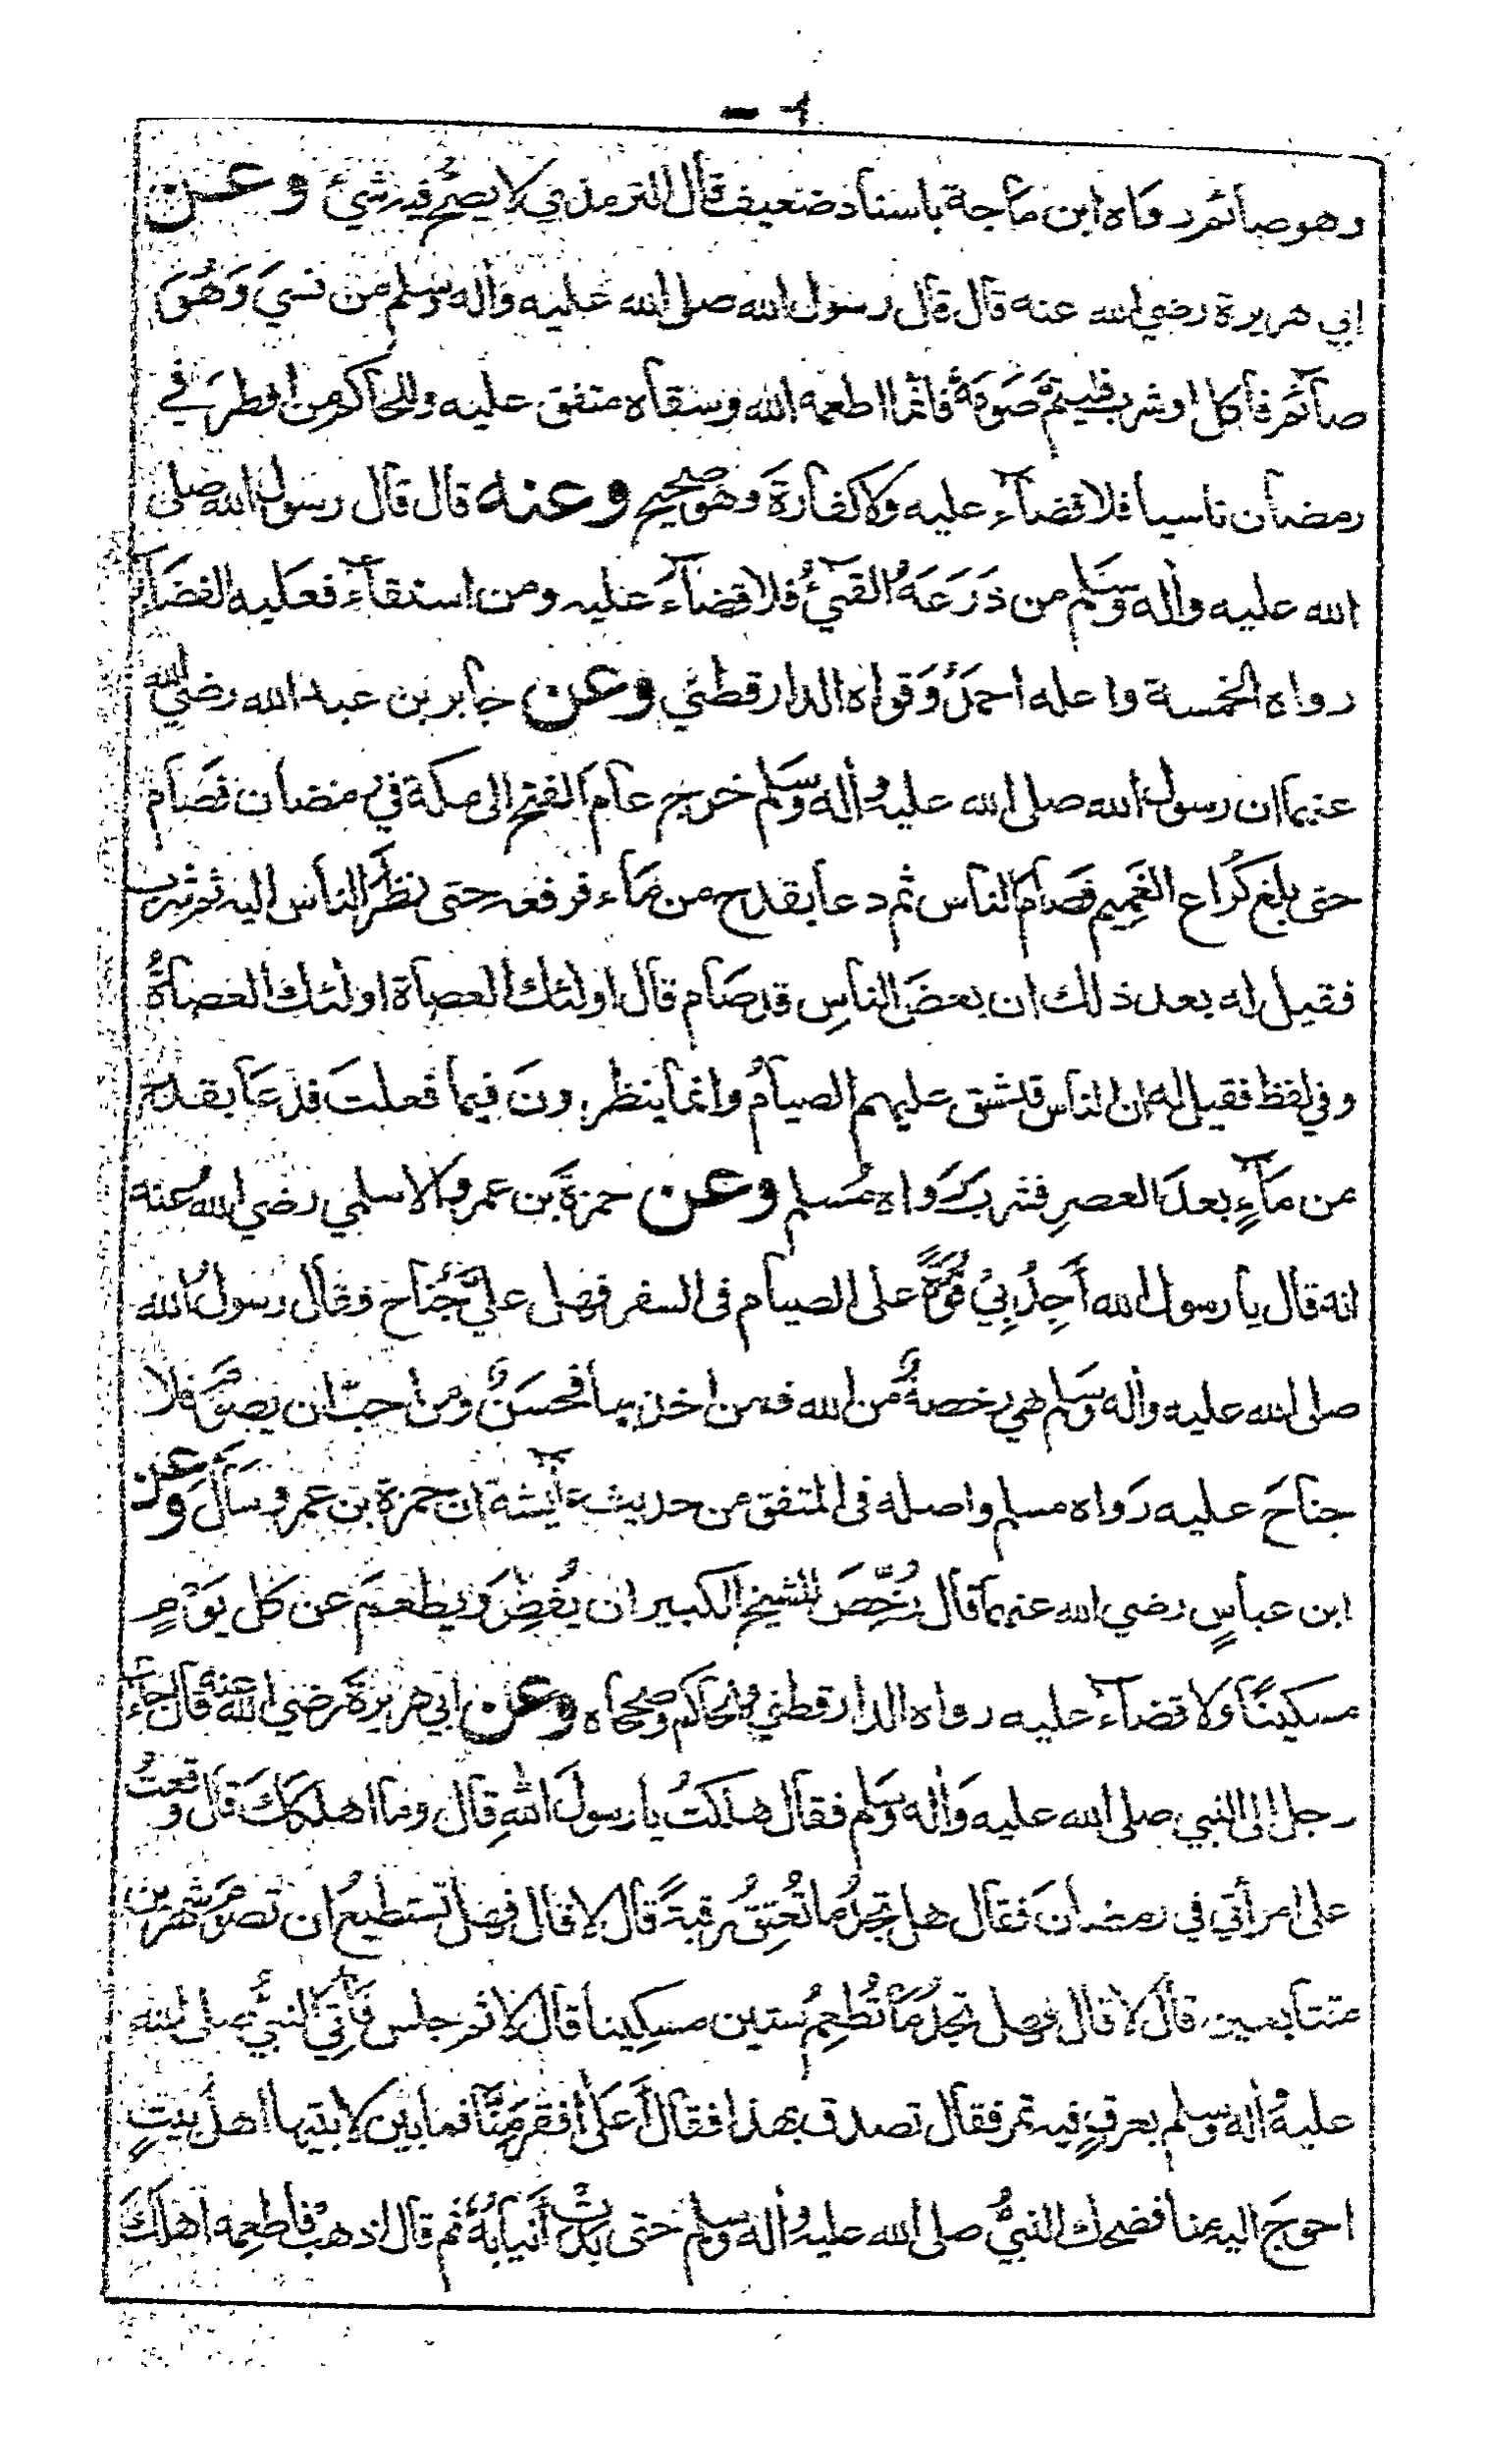 وهو صائم رواه ابن ماجة باسناد ضعيف قال الترمذي لا يصح فيه شئ وعن
ابي هريرة رضي الله عنه قال قال رسول الله صلى الله عليه واله وسلم من نسيَ وَهُوَ
صآئم فأكل او شرب فليتمَّ صَومَهُ فانما اطعمه الله وسقاه متفق عليه وللحاكم من افطرَ في
رمضان ناسيا فلا قضآء عليه ولا كفارةَ وهو صحيح وعنه قال قال رسول الله صلى
الله عليه واله وسَلم من ذَرَعَهُ القيئُ فلا قضآءَ عليه ومن استقآءَ فعليه القضَآء
رواه الخمسة واعله احمدُ وَقواه الدارقطني وعن جابر بن عبد الله رضي الله
عنهما ان رسول الله صلى الله عليه واله وسَلم خرج عام الفتح الى مكة في رمضان فصَام
حتى بلغ كُراع الغَمِيم فصَام الناس ثم دعا بقدح من مَاء فرفعه حتى نظَر الناس اليه ثم شرب
فقيل له بعد ذلك ان بعضَ الناسِ قد صَام قال اولئك العصاة اولئك العصاةُ
وفي لفظ فقيل له ان الناس قد شق عليهم الصيامُ وانما ينظرونَ فيما فعلتَ فدعَا بقدح
من مَآءٍ بعدَ العصرِ فشرب رَواه مُسلم وعن حمزةَ بن عمرو الاسلمي رضي اللهُ عنه
انه قال يا رسول الله أَجِدُ بِيْ قُوَّةً على الصيام فى السفر فهل عليَّ جُنَاح فقال رسولُ الله
صلى الله عليه واله وسَلم هي رخصةٌ من الله فمن اخذ بها فحسَنٌ ومن احبَّ ان يصومَ فلا
جناحَ عليه رَواه مسلم واصله فى المتفق من حديث عآيشة ان حمزة بن عمرو سَأل وَعن
ابن عباسٍ رضي الله عنهما قال رُخِّصَ للشيخ الكبير ان يُفطِرَ ويطعمَ عن كل يَوْمٍ
مسكينًا ولا قضآءَ عليه رواه الدارقطني والحاكم وصححاه وعن ابي هريرةَ رضي الله عنه قال جآء
رجل الى النبي صلى الله عليه وَاله وسَلم فقال هلكتُ يا رسولَ اللهِ قال وما اهلكَكَ قال وقعتُ
على امرأتي في رمضانَ فقال هل تجدُ ما تُعتِقُ رقبةً قال لا قال فهل تستطيعُ ان تصومَ شهرين
متتابعين قال لا قال فهل تجدُ مَا تُطعِمُ ستين مسكِينا قال لا ثم جلس فأُتِيَ النبيُّ صلى الله
عليه واله وسلم بعرقٍ فيه تمر فقال تصدق بهذا فقال أَعَلى أفقرَ مِنَّا فما بين لابتيها اهلُ بيتٍ
احوجَ اليه منا فضحك النبيُّ صلى الله عليه واله وسلم حتى بدَت أَنيَابُهُ ثم قال اذهبْ فاطعِمه اهلَكَ